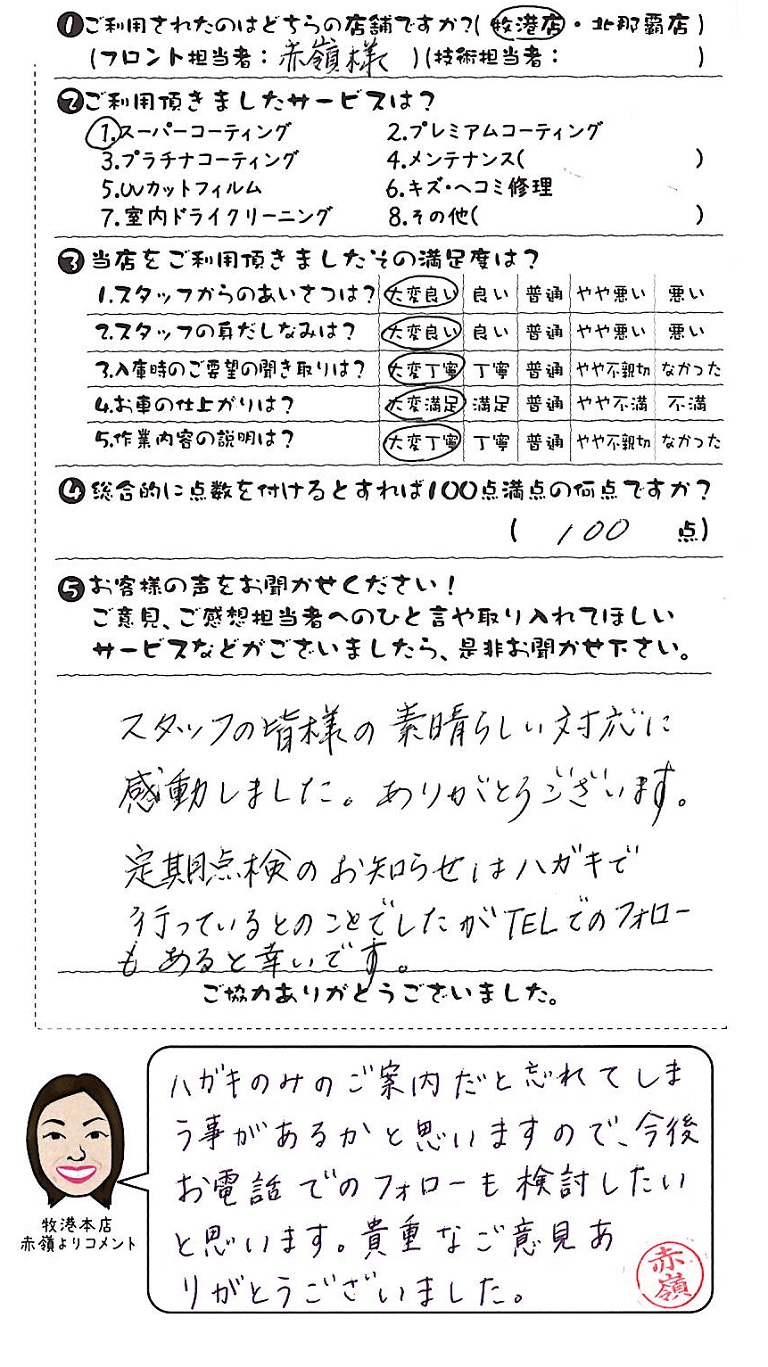 ❶ご利用されたのはどちらの店舗ですか?(牧港店・北那覇店)
(フロント担当者:赤嶺様)(技術担当者: )
❷ご利用頂きましたサービスは?
1.スーパーコーティング 2.プレミアムコーティング
3.プラチナコーティング 4.メンテナンス( )
5.UVカットフィルム 6.キズ・ヘコミ修理
7.室内ドライクリーニング 8.その他( )
❸当店をご利用頂きましたその満足度は?
1.スタッフからのあいさつは? 大変良い 良い 普通 やや悪い 悪い
2.スタッフの身だしなみは? 大変良い 良い 普通 やや悪い 悪い
3.入庫時のご要望の聞き取りは? 大変丁寧 丁寧 普通 やや不親切 なかった
4.お車の仕上がりは? 大変満足 満足 普通 やや不満 不満
5.作業内容の説明は? 大変丁寧 丁寧 普通 やや不親切 なかった
❹総合的に点数を付けるとすれば100点満点の何点ですか?
( 100 点)
❺お客様の声をお聞かせください!
ご意見、ご感想担当者へのひと言や取り入れてほしい
サービスなどがございましたら、是非お聞かせ下さい。
スタッフの皆様の素晴らしい対応に
感動しました。ありがとうございます。
定期点検のお知らせはハガキで
行っているとのことでしたがTELでのフォロー
もあると幸いです。
ご協力ありがとうございました。
ハガキのみのご案内だと忘れてしま
う事があるかと思いますので、今後
お電話でのフォローも検討したい
と思います。貴重なご意見あ
りがとうございました。
赤嶺
牧港本店
赤嶺よりコメント